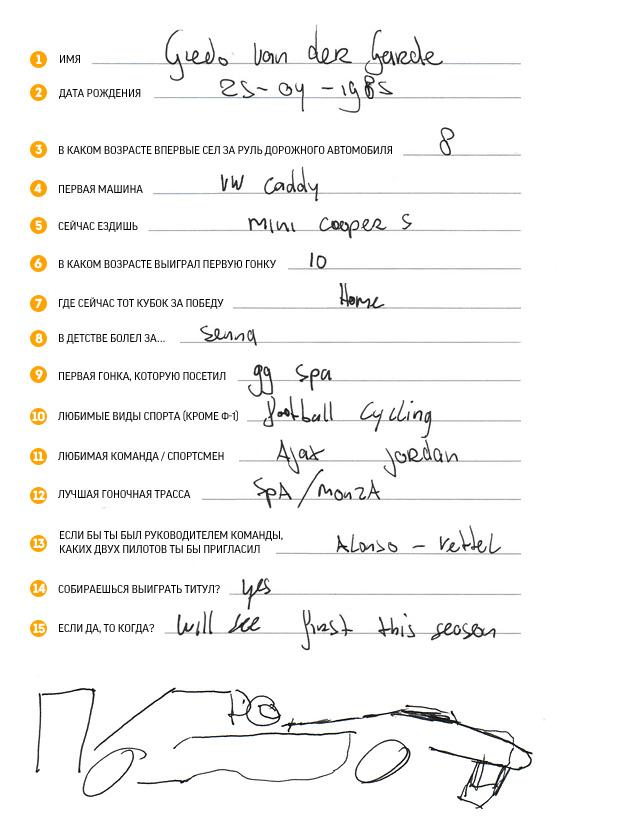 1 ИМЯ Giedo van der Garde
2 ДАТА РОЖДЕНИЯ 25-04-1985
3 В КАКОМ ВОЗРАСТЕ ВПЕРВЫЕ СЕЛ ЗА РУЛЬ ДОРОЖНОГО АВТОМОБИЛЯ 8
4 ПЕРВАЯ МАШИНА VW Caddy
5 СЕЙЧАС ЕЗДИШЬ mini cooper S
6 В КАКОМ ВОЗРАСТЕ ВЫИГРАЛ ПЕРВУЮ ГОНКУ 10
7 ГДЕ СЕЙЧАС ТОТ КУБОК ЗА ПОБЕДУ Home
8 В ДЕТСТВЕ БОЛЕЛ ЗА... Senna
9 ПЕРВАЯ ГОНКА, КОТОРУЮ ПОСЕТИЛ 99 Spa
10 ЛЮБИМЫЕ ВИДЫ СПОРТА (КРОМЕ Ф-1) football Cycling
11 ЛЮБИМАЯ КОМАНДА / СПОРТСМЕН Ajax Jordan
12 ЛУЧШАЯ ГОНОЧНАЯ ТРАССА SpA/monzA
13 ЕСЛИ БЫ ТЫ БЫЛ РУКОВОДИТЕЛЕМ КОМАНДЫ,
КАКИХ ДВУХ ПИЛОТОВ ТЫ БЫ ПРИГЛАСИЛ Alonso - Vettel
14 СОБИРАЕШЬСЯ ВЫИГРАТЬ ТИТУЛ? yes
15 ЕСЛИ ДА, ТО КОГДА? will see first this season